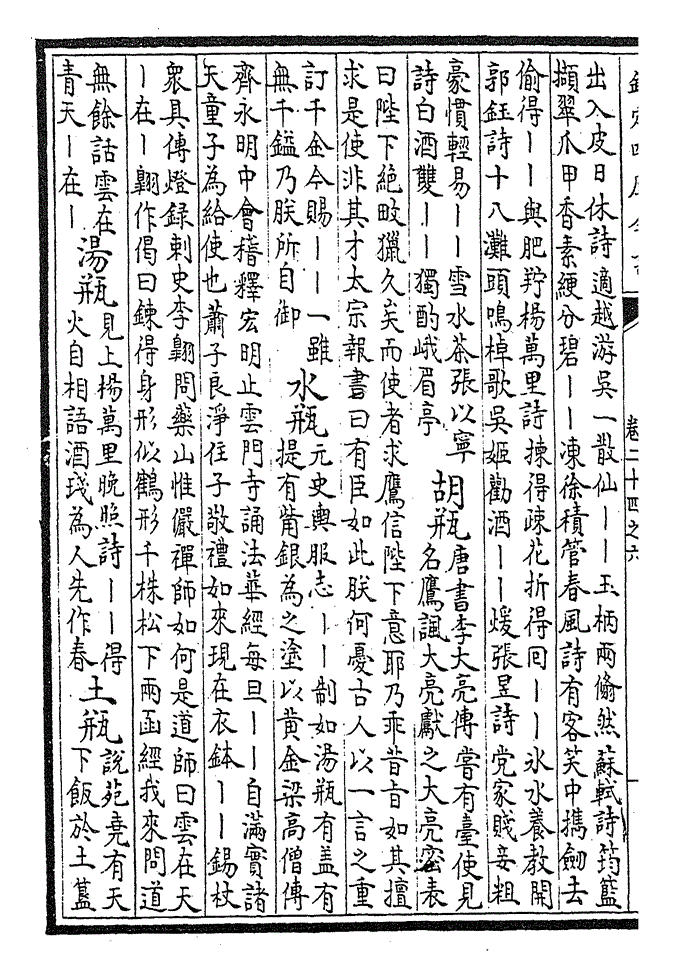 卷二十四之六
出入皮日休詩適越游吳一散仙丨丨玉柄兩翛然蘇軾詩筠籃
擷翠爪甲香素綆分碧丨丨凍徐積管春風詩有客笑中攜劒去
偷得丨丨與肥羜楊萬里詩揀得疎花折得囘丨丨氷水養教開
郭鈺詩十八灘頭鳴棹歌吳姬勸酒丨丨煖張昱詩党家賤妾粗
豪慣輕易丨丨雪水茶張以寧
詩白酒雙丨丨獨酌峨眉亭
胡瓶
唐書李大亮傳嘗有臺使見
名鷹諷大亮獻之大亮密表
曰陛下絶畋獵久矣而使者求鷹信陛下意耶乃乖昔旨如其擅
求是使非其才太宗報書曰有臣如此朕何憂古人以一言之重
訂千金今賜丨丨一雖
無千鎰乃朕所自御
水瓶
元史輿服志丨丨制如湯瓶有盖有
提有觜銀為之塗以黄金梁高僧傳
齊永明中會稽釋宏明止雲門寺誦法華經每旦丨丨自滿實諸
天童子為給使也蕭子良淨住子敬禮如來現在衣鉢丨丨錫杖
衆具傳燈録刺史李翺問藥山惟儼禪師如何是道師曰雲在天
丨在丨翺作偈曰鍊得身形似鶴形千株松下兩函經我來問道
無餘話雲在
青天丨在丨
湯瓶
見上楊萬里晚照詩丨丨得
火自相語酒琖為人先作春
土瓶
說苑堯有天
下飯於土簋